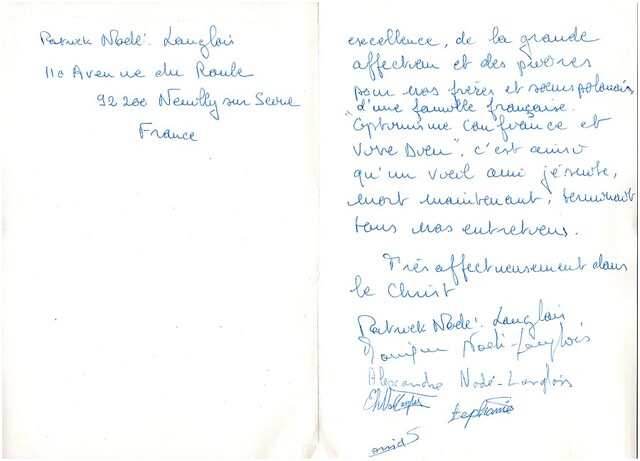 Patrick Nodé-Langlois
110 Avenue du Roule
92200 Neuilly sur Seine
France
excellence, de la grande
affection et des prières
pour nos frères et soeurs polonais
d'une famille française.
"Optimisme confiance et
Vive Dieu", c'est ainsi
qu'un vieil ami jésuite,
mort maintenant, terminait
tous nos entretiens.
Très affectueusement dans
le Christ
Patrick Nodé-Langlois
Monique Nodé-Langlois
Alexandre Nodé-Langlois
Stéphanie